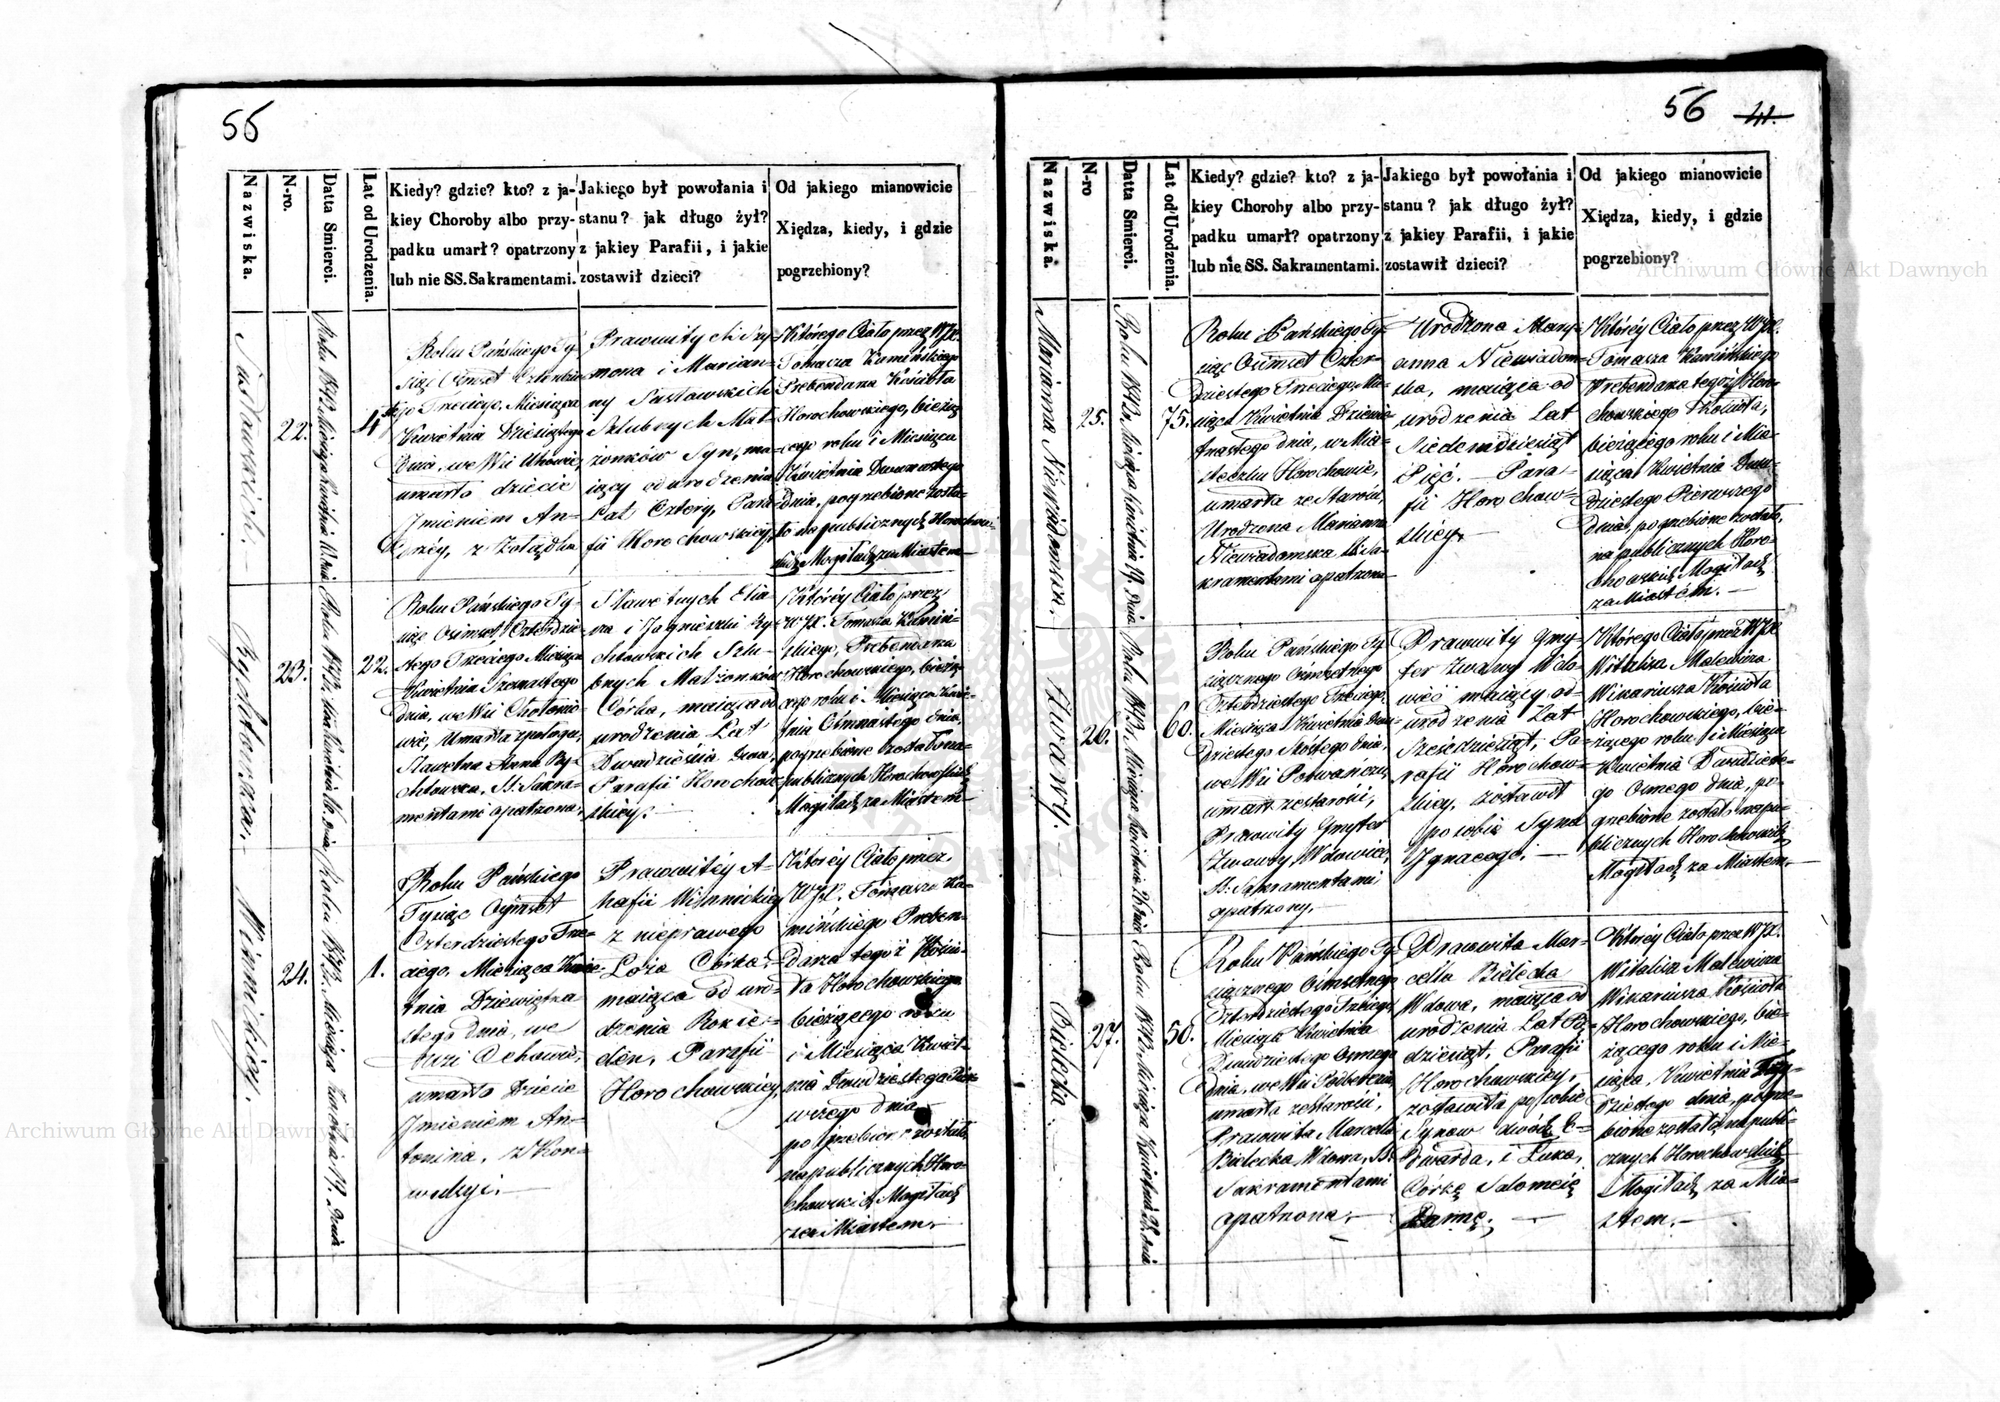 55
Nazwiska.
N-ro.
Datta Smierci.
Lat od Urodzenia.
Kiedy? gdzie? kto? z ja-
kiey Choroby albo przy-
padku umarł? opatrzony
lub nie SS. Sakramentami.
Jakiego był powołania i
stanu? jak długo żył?
z jakiey Parafii, i jakie
zostawił dzieci?
Od jakiego mianowicie
Xiędza, kiedy, i gdzie
pogrzebiony?
22.
4
Roku Pańskiego Ty-
siąc Ośmset Czterdzie-
stego Trzeciego, Miesiąca
Kwietnia Dziesiątego
Dnia, we Wsi
umarło dziecie
Imieniem An-
drzéy, z
Prawowitych Szy-
mona i Marian-
ny Sastawskich
Szlubnych Mał-
żonków Syn, ma-
iący od urodzenia
Lat Cztery, Para-
fii Horochowskiey,
Którego Ciało przez WJX.
Tomasza Kamińskiego
Prebendarza Kościoła
Horochowskiego, bieżą-
cego roku i Miesiąca
Kwietnia Dwunastego
Dnia, pogrzebione zosta-
ło na publicznych Horochow-
skich Mogiłach za Miastem
Rychłowska.
23.
22.
Roku Pańskiego Ty-
siąc Ośmset Czterdzie-
stego Trzeciego Miesiąca
Kwietnia Szesnastego
dnia, we Wsi Chołonio-
wie, Umarła z połogu,
Sławetna Anna Ry-
chłowska, SS: Sakra-
mentami opatrzona,
Sławetnych Elia-
sza i Jagnieszki Ry-
chłowskich Szlu-
bnych Małżonków
Córka, maiąca od
urodzenia Lat
Dwadzieścia dwa,
Parafii Horochow-
skiey.
Którey Ciało przez
WJX. Tomasza Kamiń-
skiego, Prebendarza
Horochowskiego, bieżą-
cego roku i Miesiąca Kwie-
tnia Ośmnastego dnia,
pogrzebione zostało na
publicznych Horochowskich
Mogiłach za Miastem
24.
1.
Roku Pańskiego
Tysiąc Ośmset
Czterdziestego Trze-
ciego, Miesiąca Kwie-
tnia Dziewiętna-
stego dnia, we
Wsi
umarło Dziecie
Imieniem An-
tonina, z Kon-
wulsyi.
Prawowitéy A-
hafii Wismnickiey
z nieprawego
Łoża Córka,
maiąca od uro-
dzenia Rok ie-
den, Parafii
Horochowskiey,
Którey Ciało przez
WJX. Tomasza Ka-
mińskiego Preben-
darza tegoż Kościo-
ła Horochowskiego
bieżącego roku
i Miesiąca Kwiet-
nia Dwudziestego Pier-
wszego dnia
pogrzebione zostało
na publicznych Horo-
chowskich Mogiłach
za Miastem.
56
Nazwiska.
N-ro
Datta Smierci.
Lat od Urodzenia.
Kiedy? gdzie? kto? z ja-
kiey Choroby albo przy-
padku umarł? opatrzony
lub nie SS. Sakramentami.
Jakiego był powołania i
stanu? jak długo żył?
z jakiey Parafii, i jakie
zostawił dzieci?
Od jakiego mianowicie
Xiędza, kiedy, i gdzie
pogrzebiony?
Marianna Niewiadomska.
25.
Roku 1843. Miesiąca Kwietnia 19. Dnia
75.
Roku Pańskiego Ty-
siąc Ośmset Czter-
dziestego Trzeciego, Mie-
siąca Kwietnia Dziewię-
tnastego dnia, w Mia-
steczku Horochowie,
umarła ze Starości,
Urodzona Marianna
Niewiadomska SS. Sa-
kramentami opatrzona
Urodzona Mary-
anna Niewiadom-
ska, maiąca od
urodzenia Lat
Siedemdziesiąt
i Pięć. Para-
fii Horochow-
skiey.
Którey Ciało przez WJX.
Tomasza Kamińskiego
Prebendarza tegoż Horo-
chowskiego Kościoła,
bieżącego roku i Mie-
siąca Kwietnia Dwu-
dziestego Pierwszego
Dnia, pogrzebione zostało,
na publicznych Horo-
chowskich Mogiłach
za Miastem.
Zwawy.
26.
60.
Roku Pańskiego Ty-
siącznego Ośmsetnego
Czterdziestego Trzeciego,
Miesiąca Kwietnia Dwu-
dziestego Szóstego dnia,
we Wsi Polwańczu,
umarł ze starości,
Prawowity Gmyter
Zwawy, Wdowiec,
SS: Sakramentami
opatrzony.
Prawowity Gmy-
ter Zwawy Wdo-
wiec maiący od
urodzenia Lat
Sześćdziesiąt, Pa-
rafii Horochow-
skiey, zostawił
po sobie Syna
Ignacego.
Którego Ciało przez WJX
Witalisa Malewicza
Wikariusza Kościoła
Horochowskiego, bie-
żącego roku, i Miesiąca
Kwietnia Dwudzieste-
go Osmego dnia, po-
grzebione zostało na pu-
blicznych Horochowskich
Mogiłach za Miastem.
Bielecka
27.
50.
Roku Pańskiego Ty-
siącznego Ośmsetnego
Czterdziestego Trzeciego,
Miesiąca Kwietnia
Dwudziestego Osmego
dnia, we Wsi Podbereziu,
umarła ze starości,
Prawowita Marcella
Bielecka, Wdowa, SS.
Sakramentami
opatrzona.
Prawowita Mar-
cella Bielecka
Wdowa, maiąca od
urodzenia Lat Pię-
dziesiąt, Parafii
Horochowskiey,
zostawiła po sobie
Synow dwóch E-
dwarda, i Łuka,
Córkę Salomeię
Pannę.
Którey Ciało przez WJX.
Witalisa Malewicza
Wikariusza Kościoła
Horochowskiego, bie-
żącego roku i Mie-
siąca, Kwietnia Trzy-
dziestego dnia, pogrze-
bione zostało, na publi-
cznych Horochowskich
Mogiłach za Mia-
stem.
Archiwum Główne Akt Dawnych
Archiwum Główne Akt Dawnych